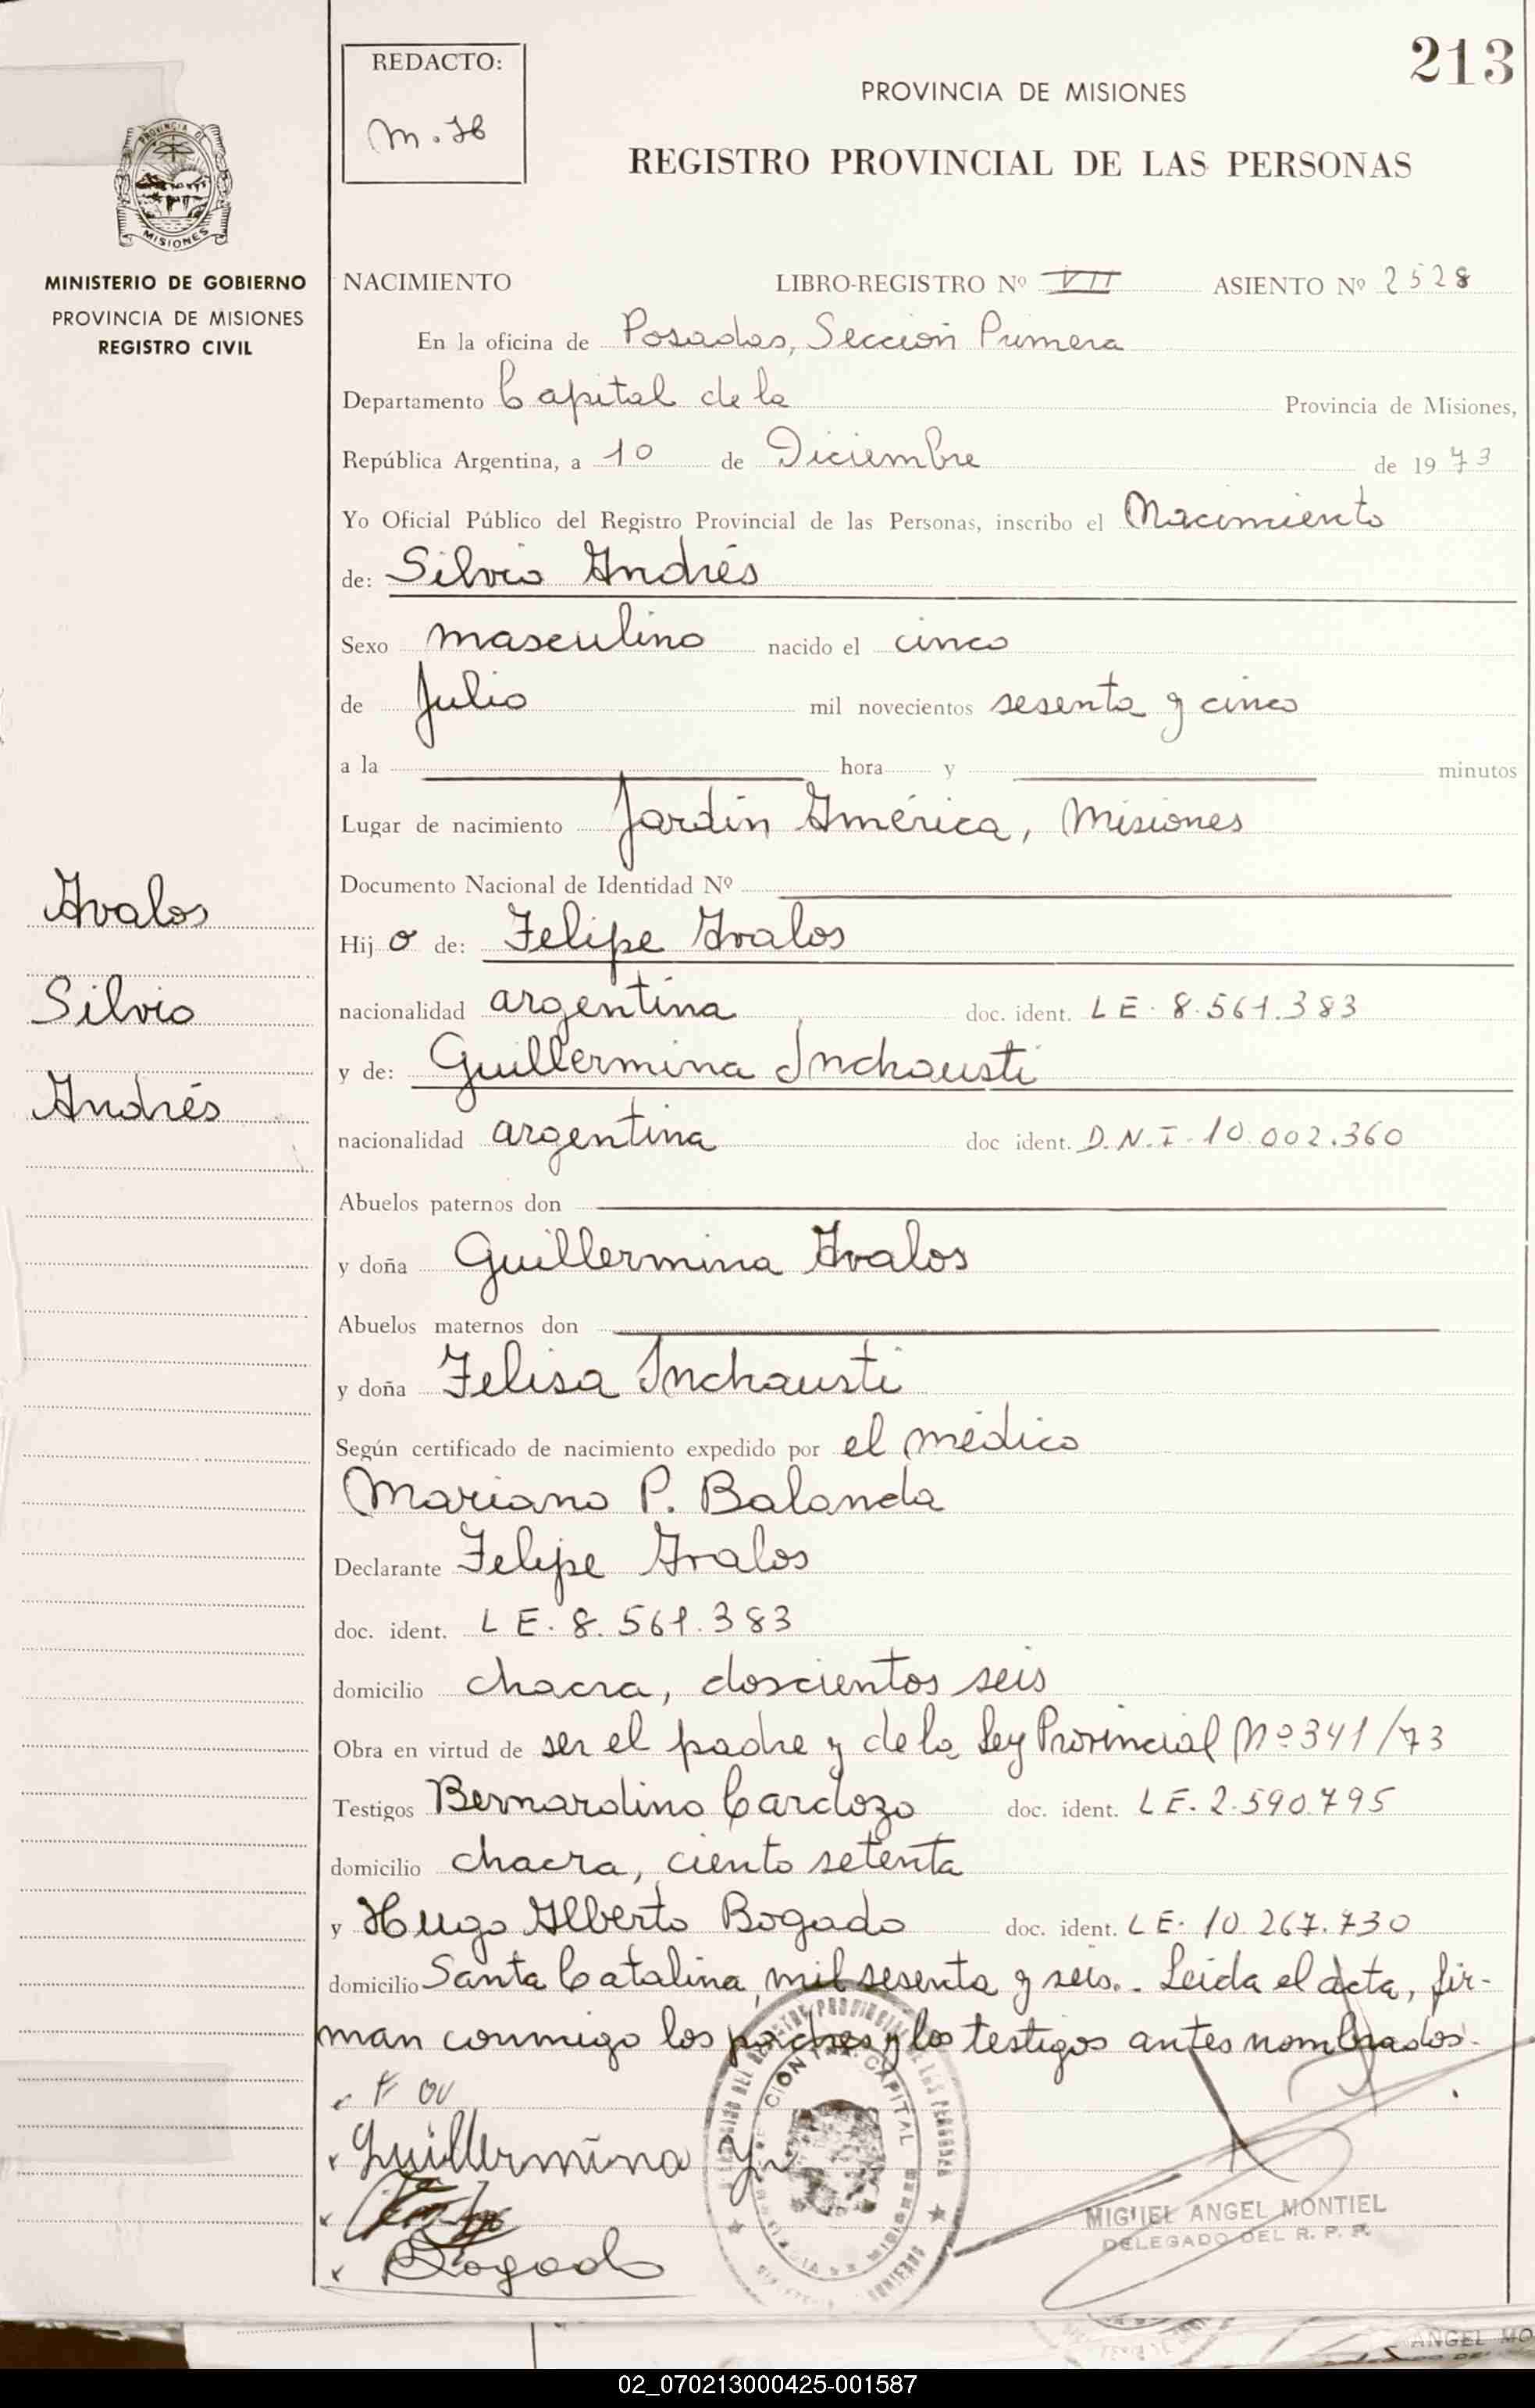 213
REDACTO:
M. Jb
PROVINCIA DE MISIONES
REGISTRO PROVINCIAL DE LAS PERSONAS
PROVINCIA DE
MISIONES
MINISTERIO DE GOBIERNO
PROVINCIA DE MISIONES
REGISTRO CIVIL
NACIMIENTO LIBRO-REGISTRO Nº VII ASIENTO Nº 2528
En la oficina de Posadas, Sección Primera
Departamento Capital de la Provincia de Misiones,
República Argentina, a 10 de Diciembre de 1973
Yo Oficial Público del Registro Provincial de las Personas, inscribo el Nacimiento
de: Silvio Andrés
Sexo masculino nacido el cinco
de Julio mil novecientos sesenta y cinco
a la hora y minutos
Lugar de nacimiento Jardín América, Misiones
Documento Nacional de Identidad Nº
Avalos
Silvio
Andrés
Hijo de: Felipe Avalos
nacionalidad argentina doc. ident. LE. 8.561.383
y de: Guillermina Inchausti
nacionalidad argentina doc ident. D.N.I. 10.002.360
Abuelos paternos don
y doña Guillermina Avalos
Abuelos maternos don
y doña Felisa Inchausti
Según certificado de nacimiento expedido por el médico
Mariano P. Balanda
Declarante Felipe Avalos
doc. ident. LE. 8.561.383
domicilio chacra, doscientos seis
Obra en virtud de ser el padre y de la Ley Provincial Nº 341/73
Testigos Bernardino Cardozo doc. ident. LE. 2.590.795
domicilio chacra, ciento setenta
y Hugo Alberto Bogado doc. ident. LE. 10.267.730
domicilio Santa Catalina, mil sesenta y seis.. Leída el acta, fir-
man conmigo los padres y los testigos antes nombrados.
Guillermina
Bogado
MIGUEL ANGEL MONTIEL
DELEGADO DEL R. P. P.
CAPITAL
MISIONES
ANGEL MO
02_070213000425-001587